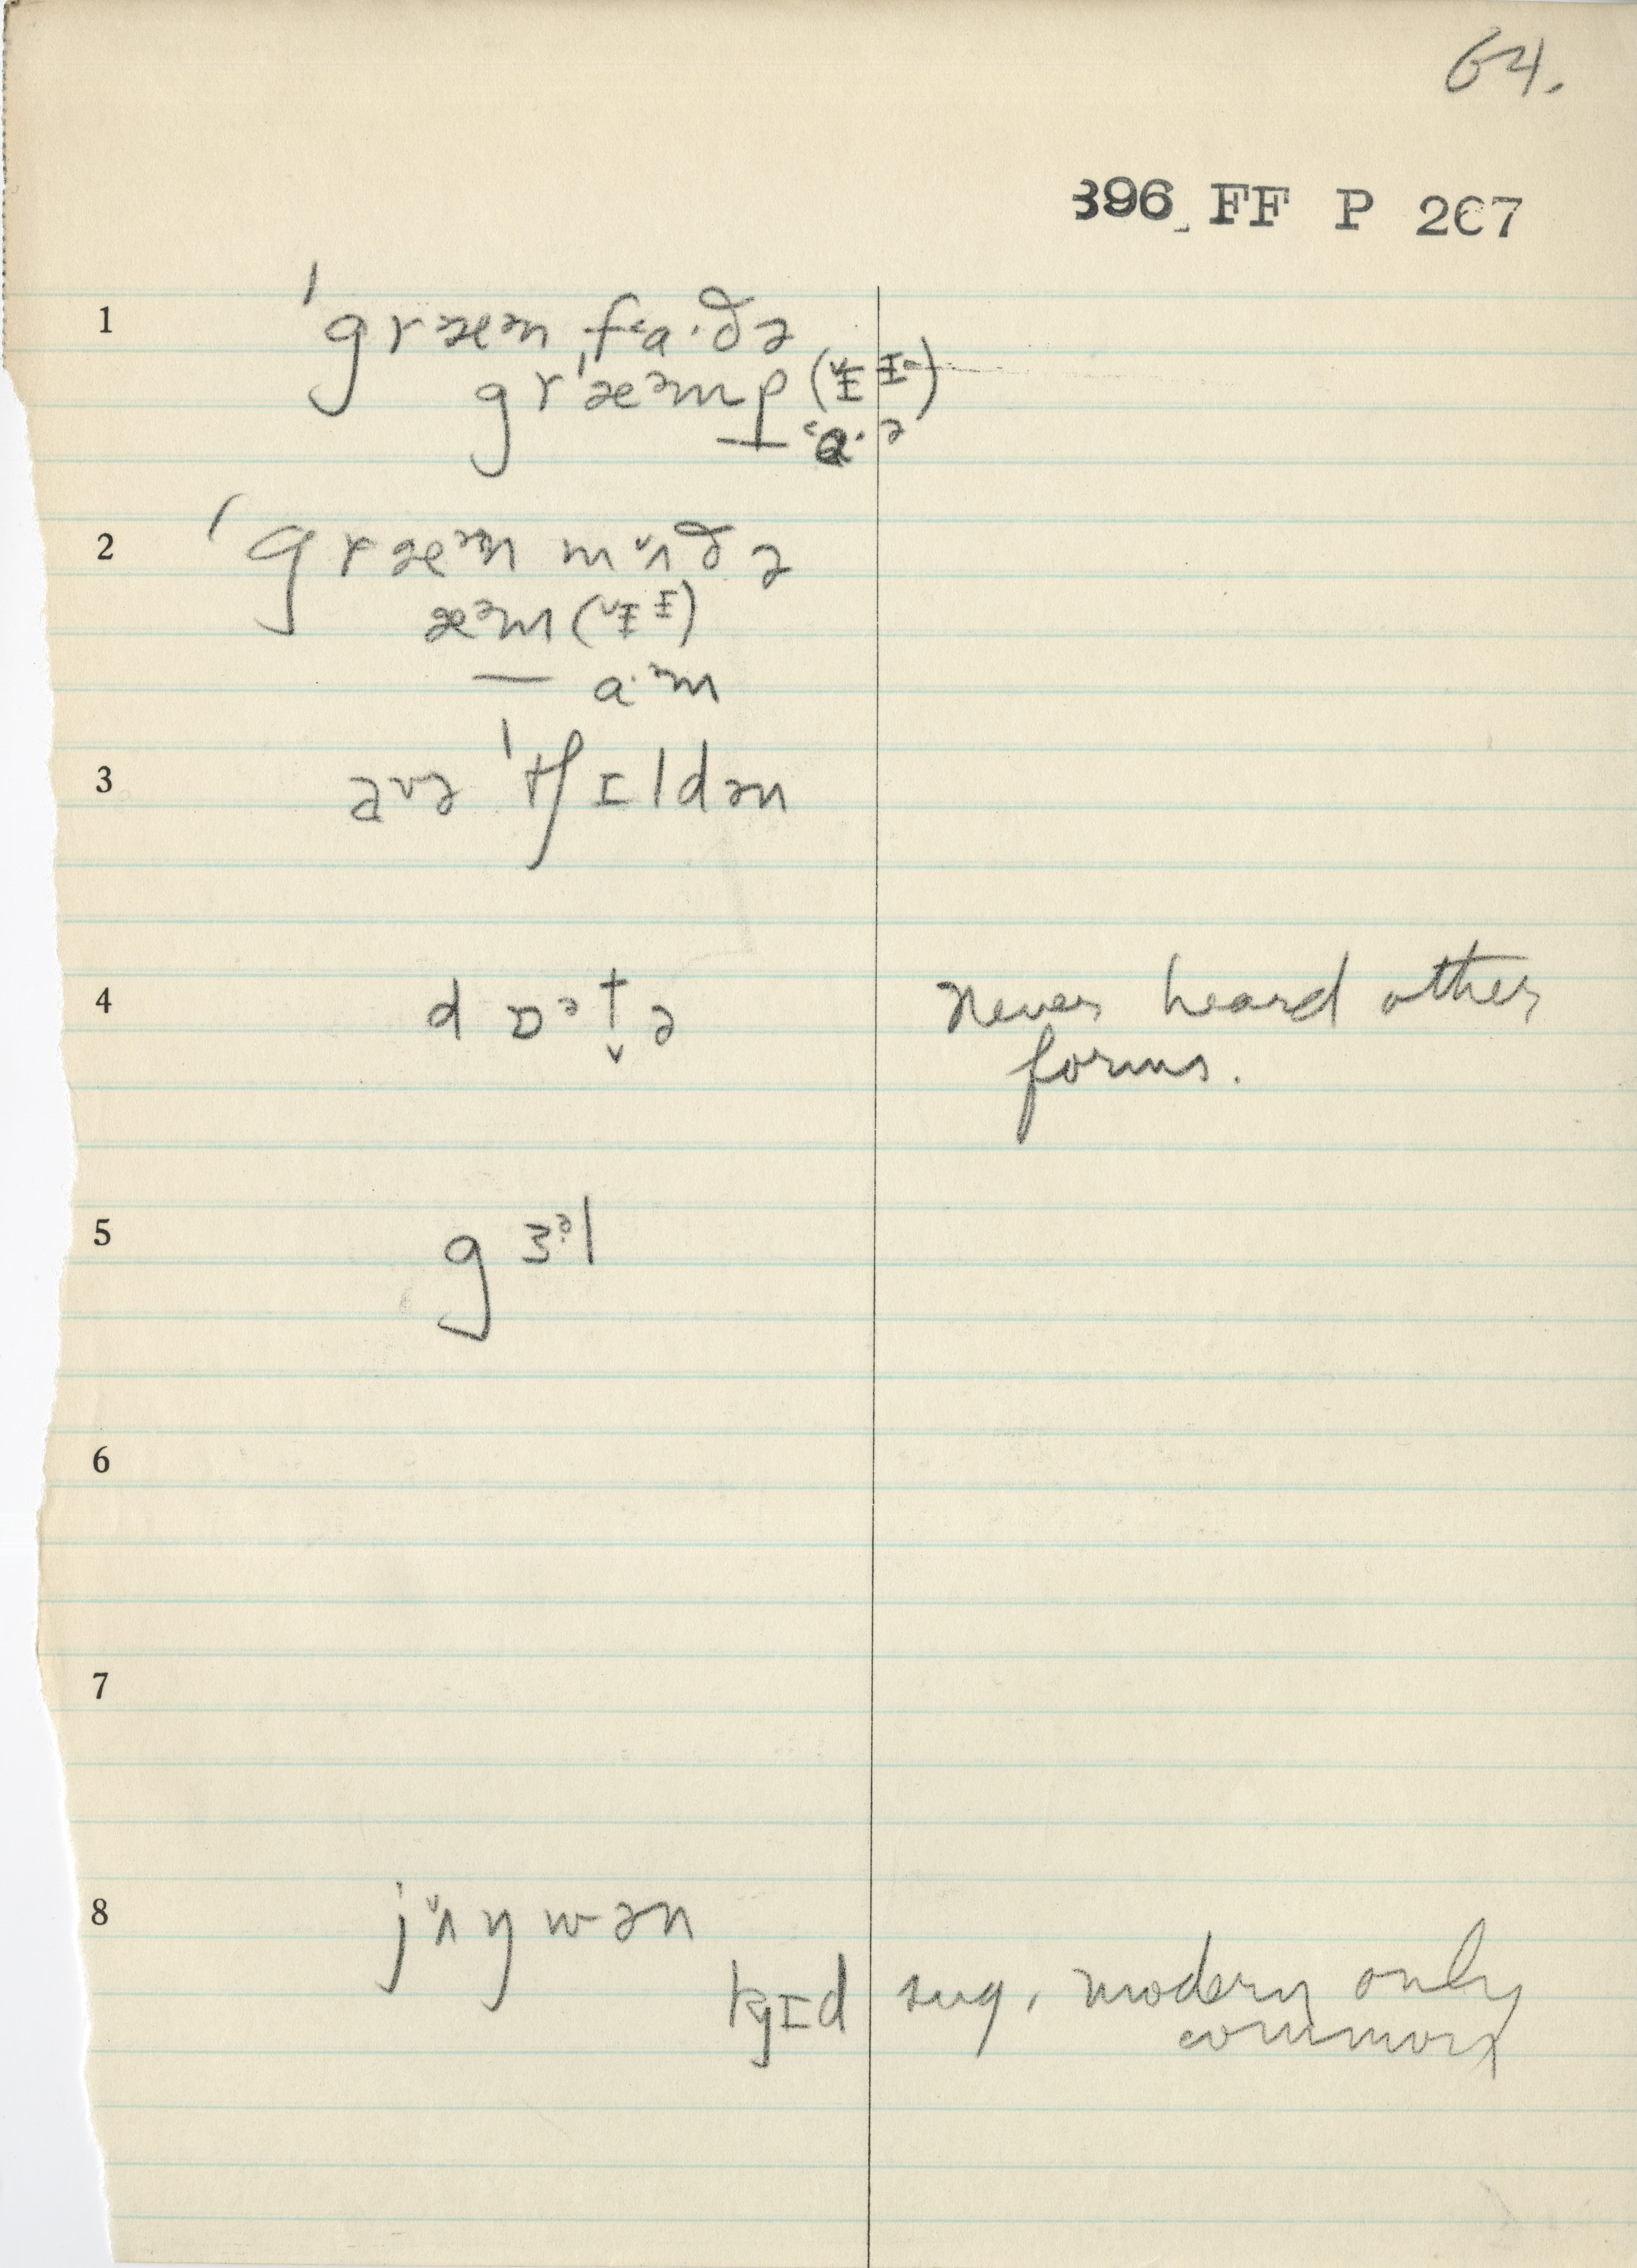 64.
396 FF P 267
1 ˈgræən ˌf˂a·ðə
grˈæəmp (˅ɪ̵ ɪ̵ə)
— ˂ɑ· ə
2 ˈgræən m˅ʌðə
æəm (˅ɪ̵ ɪ̵)
— a·əm
3 avə ˈtʃɪldən
4 dɒət̬ə never heard other
forms.
5 gɜəl
6
7
8 j˅ʌŋwən
kɪd sug. modern only
common